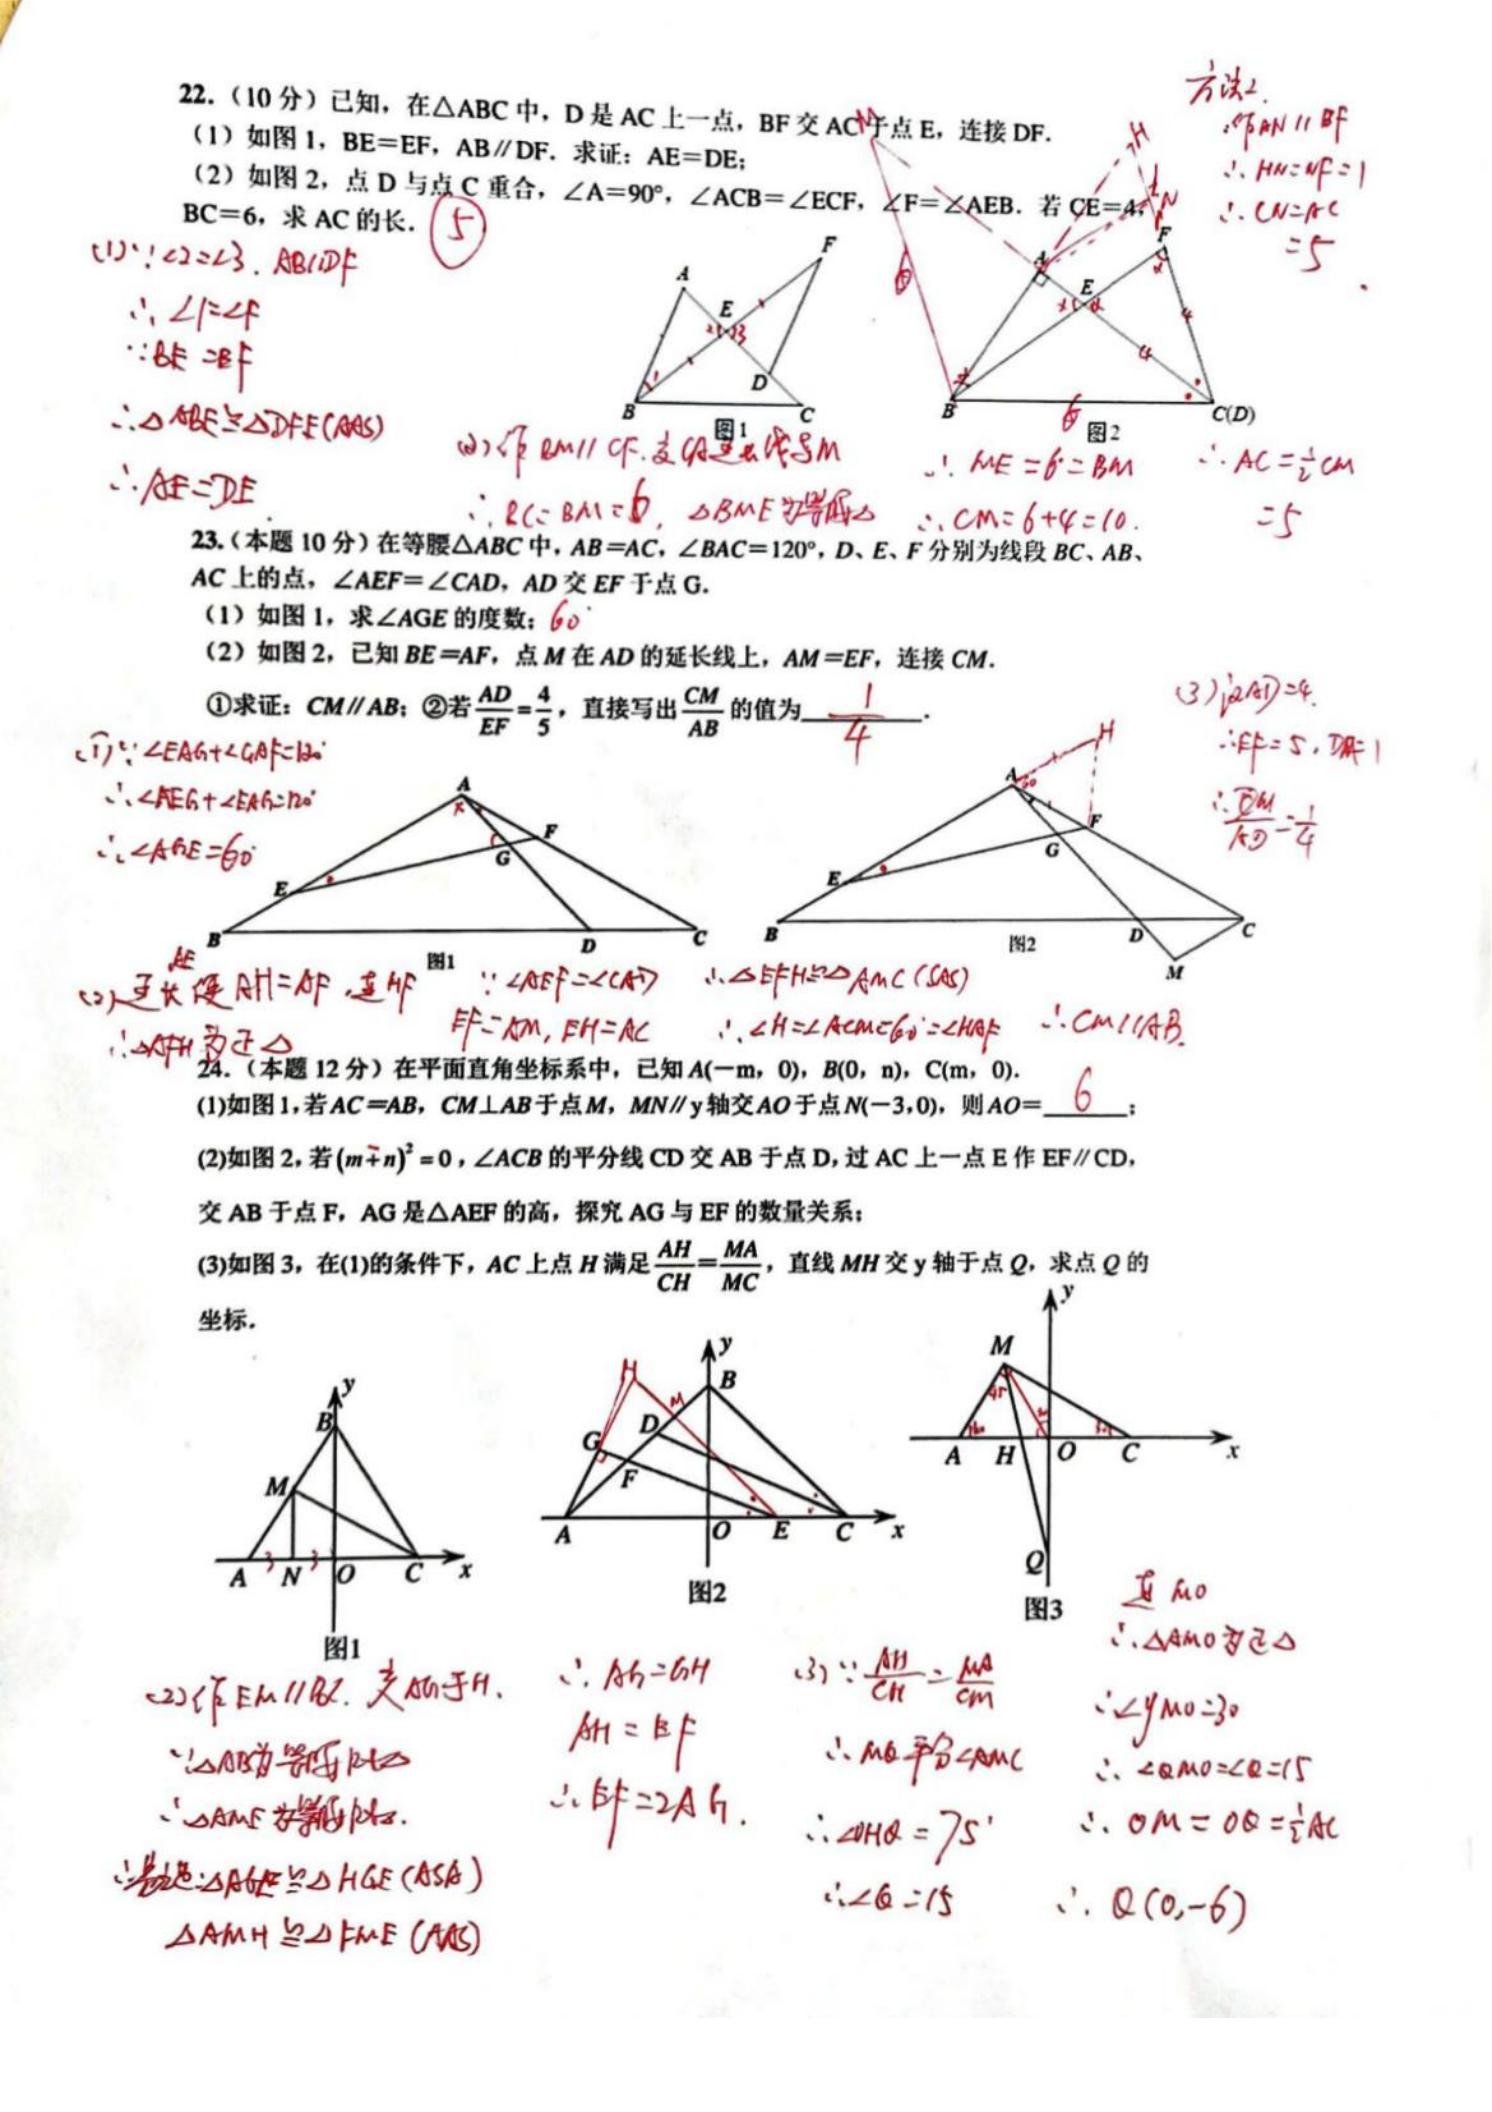 22.（10 分）已知，在△ABC 中，D 是 AC 上一点，BF 交 AC 于点 E，连接 DF.
（1）如图 1，BE＝EF，AB∥DF．求证：AE＝DE；
（2）如图 2，点 D 与点 C 重合，∠A＝90°，∠ACB＝∠ECF，∠F＝∠AEB．若 CE＝4，
BC＝6，求 AC 的长． 5
方法2.
作AN∥BF
∴HN=NF=1
∴CN=AC
=5
(1)∵∠2=∠3. AB∥DF
∴∠1=∠F
∵BE=EF
∴△ABE≌△DFE(AAS)
∴AE=DE
A E F B D C 图1
M H 1 N 1 F A E 4 4 B 6 C(D) 图2
(2)作BM∥CF.交CA延长线与M
∴BC=BM=6, △BME为等腰△
∴ME=6=BM
∴CM=6+4=10.
∴AC=½CM
=5
23.（本题 10 分）在等腰△ABC 中，AB＝AC，∠BAC＝120°，D、E、F 分别为线段 BC、AB、
AC 上的点，∠AEF＝∠CAD，AD 交 EF 于点 G．
（1）如图 1，求∠AGE 的度数；60°
（2）如图 2，已知 BE＝AF，点 M 在 AD 的延长线上，AM＝EF，连接 CM．
①求证：CM∥AB；②若 AD/EF = 4/5，直接写出 CM/AB 的值为 1/4 .
(1)∵∠EAG+∠GAF=120°
∴∠AEG+∠EAG=120°
∴∠AGE=60°
A F G E B D C 图1
H A 60 F G E B D C M 图2
(3)设AD=4.
∴EF=5, DM=1
∴DM/AD=1/4
(2)延长AE使AH=AF,连HF
∴△AFH为正△
∵∠AEF=∠CAD
EF=AM, EH=AC
∴△EFH≌△AMC(SAS)
∴∠H=∠ACM=60°=∠HAF
∴CM∥AB.
24.（本题 12 分）在平面直角坐标系中，已知 A(－m，0)，B(0，n)，C(m，0)．
(1)如图 1，若 AC＝AB，CM⊥AB 于点 M，MN∥y 轴交 AO 于点 N(－3,0)，则 AO＝ 6 ；
(2)如图 2，若 (m－n)²=0，∠ACB 的平分线 CD 交 AB 于点 D，过 AC 上一点 E 作 EF∥CD，
交 AB 于点 F，AG 是△AEF 的高，探究 AG 与 EF 的数量关系；
(3)如图 3，在(1)的条件下，AC 上点 H 满足 AH/CH = MA/MC，直线 MH 交 y 轴于点 Q，求点 Q 的
坐标．
y B M 3 3 A N O C x 图1
y H M B D G F A O E C x 图2
y M 45 60 30 A H O C x Q 图3
(2)作EM∥BC.交AG于H.
∵△ABC为等腰Rt△
∴△AME为等腰Rt△.
∴易证△AGE≌△HGE(ASA)
△AMH≌△FME(AAS)
∴AG=GH
AH=EF
∴EF=2AG.
(3)∵AH/CH=MA/CM
∴MQ平分∠AMC
∴∠OHQ=75°
∴∠Q=15
连MO
∴△AMO为正△
∴∠yMO=30
∴∠QMO=∠Q=15
∴OM=OQ=½AC
∴Q(0,-6)